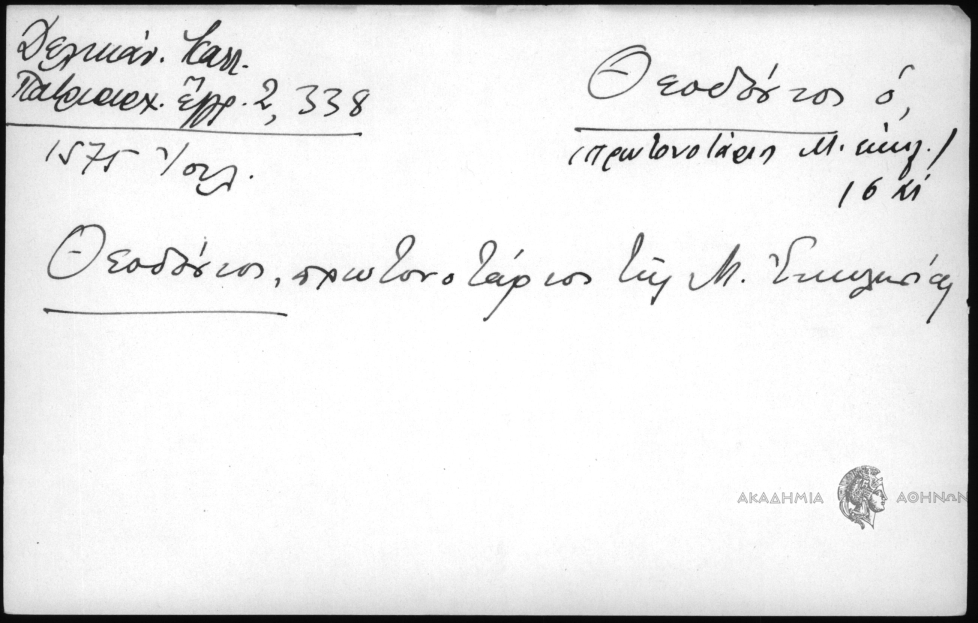 Δελικάν. Καλλ.
Πατριαρχ. Ἔγγρ. 2, 338
1575 Ἰουλ.
Θεοδόσιος ὁ,
(πρωτονοτάριος Μ. ἐκκλ.)
16 αἰ
Θεοδόσιος, πρωτονοτάριος τῆς Μ. Ἐκκλησίας
ΑΚΑΔΗΜΙΑ ΑΘΗΝΩΝ